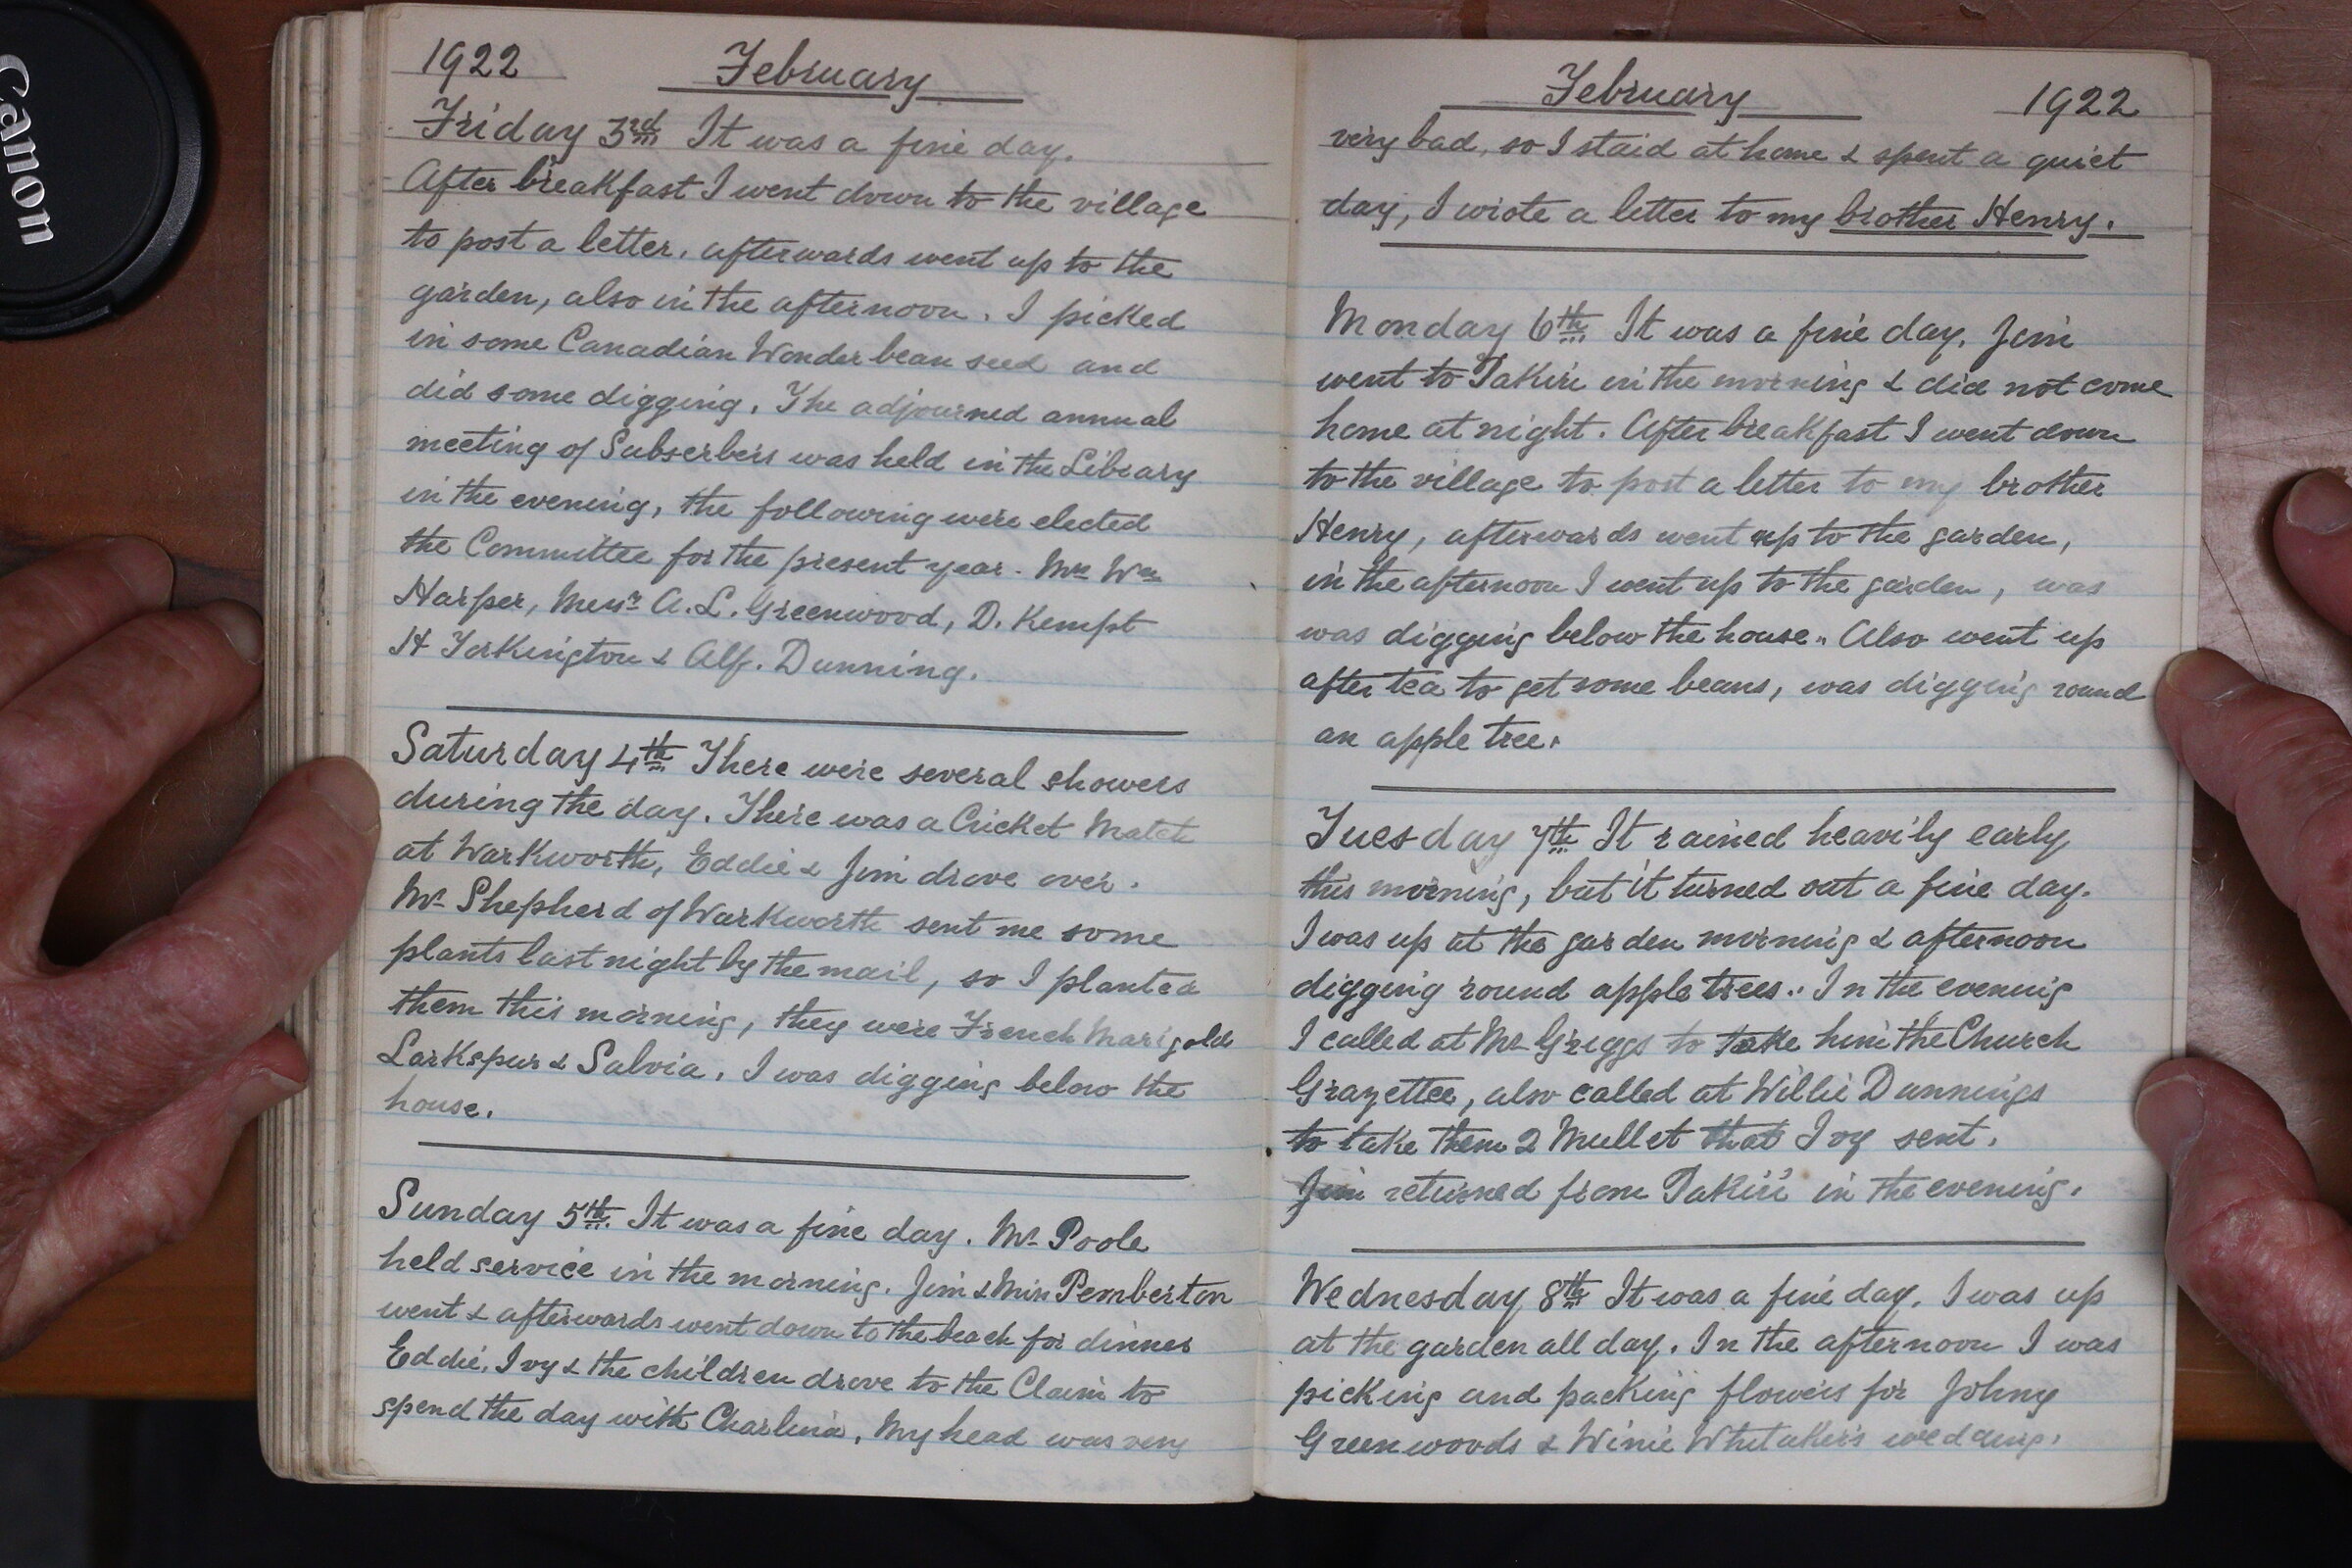 Canon
1922 February
Friday 3rd It was a fine day.
After breakfast I went down to the village
to post a letter, afterwards went up to the
garden, also in the afternoon. I picked
in some Canadian Wonder bean seed and
did some digging. The adjourned annual
meeting of Subserbers was held in the Library
in the evening, the following were elected
the Committee for the present year. Mr Wm
Harper, Messrs A. L. Greenwood, D. Kempt
H Yorkington & Alf. Dunning.
Saturday 4th There were several showers
during the day. There was a Cricket Match
at Warkworth, Eddie & Jim drove over.
Mr Shepherd of Warkworth sent me some
plants last night by the mail, so I planted
them this morning, they were French Marigold
Larkspur & Salvia. I was digging below the
house.
Sunday 5th. It was a fine day. Mr Poole
held service in the morning. Jim & Miss Pemberton
went & afterwards went down to the beach for dinner
Eddie, Ivy & the children drove to the Claim to
spend the day with Charlina, My head was very
February 1922
very bad, so I staid at home & spent a quiet
day, I wrote a letter to my brother Henry.
Monday 6th It was a fine day. Jim
went to Pakiri in the morning & did not come
home at night. After breakfast I went down
to the village to post a letter to my brother
Henry, afterwards went up to the garden,
in the afternoon I went up to the garden, was
was digging below the house. Also went up
after tea to get some beans, was digging round
an apple tree.
Tuesday 7th It rained heavily early
this morning, but it turned out a fine day.
I was up at the garden morning & afternoon
digging round apple trees. In the evening
I called at Mr Griggs to take him the Church
Grazettee, also called at Willie Dunnings
to take them 2 Mullet that Ivy sent.
Jim returned from Pakiri in the evening.
Wednesday 8th It was a fine day. I was up
at the garden all day. In the afternoon I was
picking and packing flowers for Johny
Greenwoods & Winie Whitakers wedding.